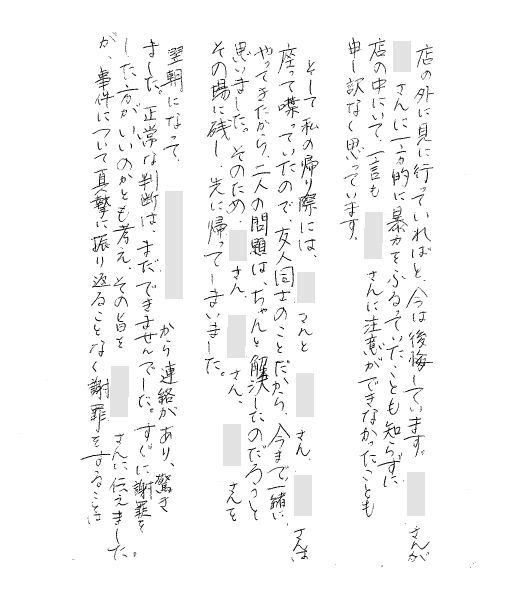 店の外に見に行っていればと、今は後悔しています。 さんが
さんに一方的に暴力をふるっていたことも知らずに
店の中にいて、一言も さんに注意ができなかったことも
申し訳なく思っています。
そして私の帰り際には、 さんと さん、 さんは
座って喋っていたので、友人同士のことだから、今まで一緒に
やってきたから、二人の問題は、ちゃんと解決したのだろうと
思いました。そのため、 さん、 さん、 さんを
その場に残し、先に帰ってしまいました。
翌朝になって、 から連絡があり、驚き
ました。正常な判断は、まだできませんでした。すぐに謝罪を
した方がいいのかとも考え、その旨を さんに伝えました。
が、事件について真摯に振り返ることなく謝罪をすることは